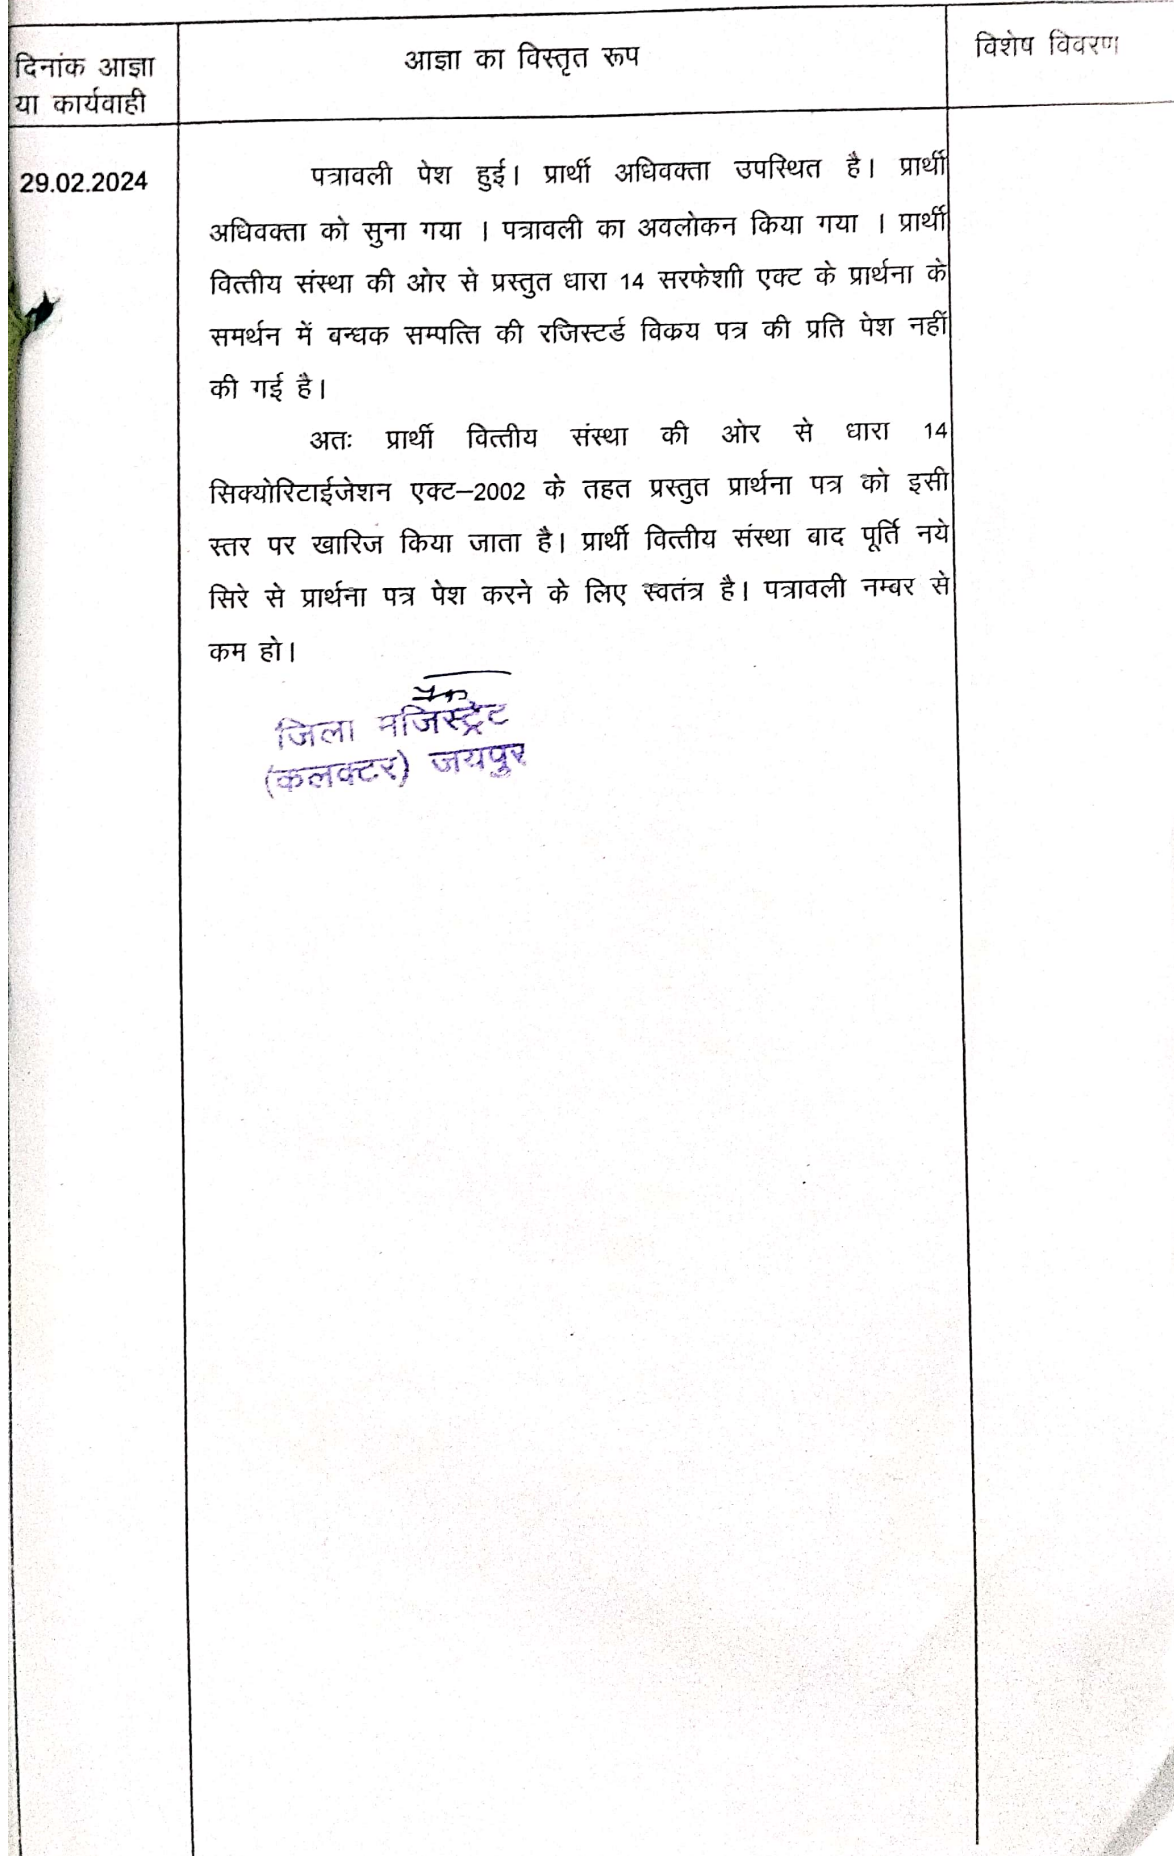 दिनांक आज्ञा
या कार्यवाही
आज्ञा का विस्तृत रूप
विशेष विवरण
29.02.2024
पत्रावली पेश हुई। प्रार्थी अधिवक्ता उपस्थित है। प्रार्थी
अधिवक्ता को सुना गया । पत्रावली का अवलोकन किया गया । प्रार्थी
वित्तीय संस्था की ओर से प्रस्तुत धारा 14 सरफेशाी एक्ट के प्रार्थना के
समर्थन में बन्धक सम्पत्ति की रजिस्टर्ड विक्रय पत्र की प्रति पेश नहीं
की गई है।
अतः प्रार्थी वित्तीय संस्था की ओर से धारा 14
सिक्योरिटाईजेशन एक्ट–2002 के तहत प्रस्तुत प्रार्थना पत्र को इसी
स्तर पर खारिज किया जाता है। प्रार्थी वित्तीय संस्था बाद पूर्ति नये
सिरे से प्रार्थना पत्र पेश करने के लिए स्वतंत्र है। पत्रावली नम्बर से
कम हो।
जिला मजिस्ट्रेट
(कलक्टर) जयपुर